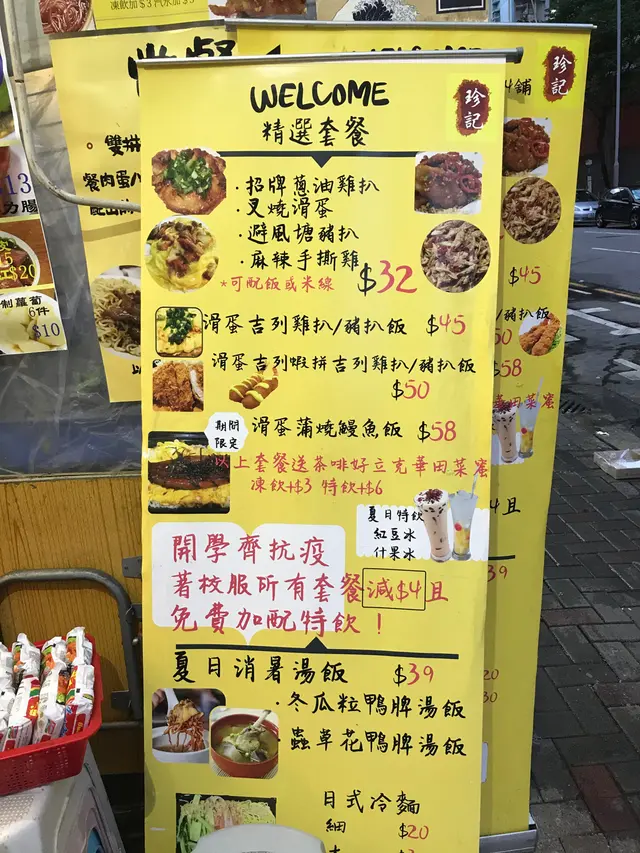 凍飲加$3 汽水加$5
WELCOME
珍記
精選套餐
· 招牌蔥油雞扒
· 叉燒滑蛋
· 避風塘豬扒
· 麻辣手撕雞
$32
*可配飯或米線
滑蛋吉列雞扒/豬扒飯 $45
滑蛋吉列蝦拼吉列雞扒/豬扒飯
$50
期間
限定
滑蛋蒲燒鰻魚飯 $58
以上套餐送茶啡好立克華田菜蜜
凍飲+$3 特飲+$6
夏日特飲
紅豆冰
什果冰
開學齊抗疫
著校服所有套餐減$4且
免費加配特飲！
夏日消暑湯飯 $39
· 冬瓜粒鴨脾湯飯
蟲草花鴨脾湯飯
日式冷麵
細 $20
珍記
$45
/豬扒飯
50
$58
田菜蜜
4且
39
20
30
。雙拼
餐肉蛋
13
力腸
$20
制蘿蔔
6件
$10